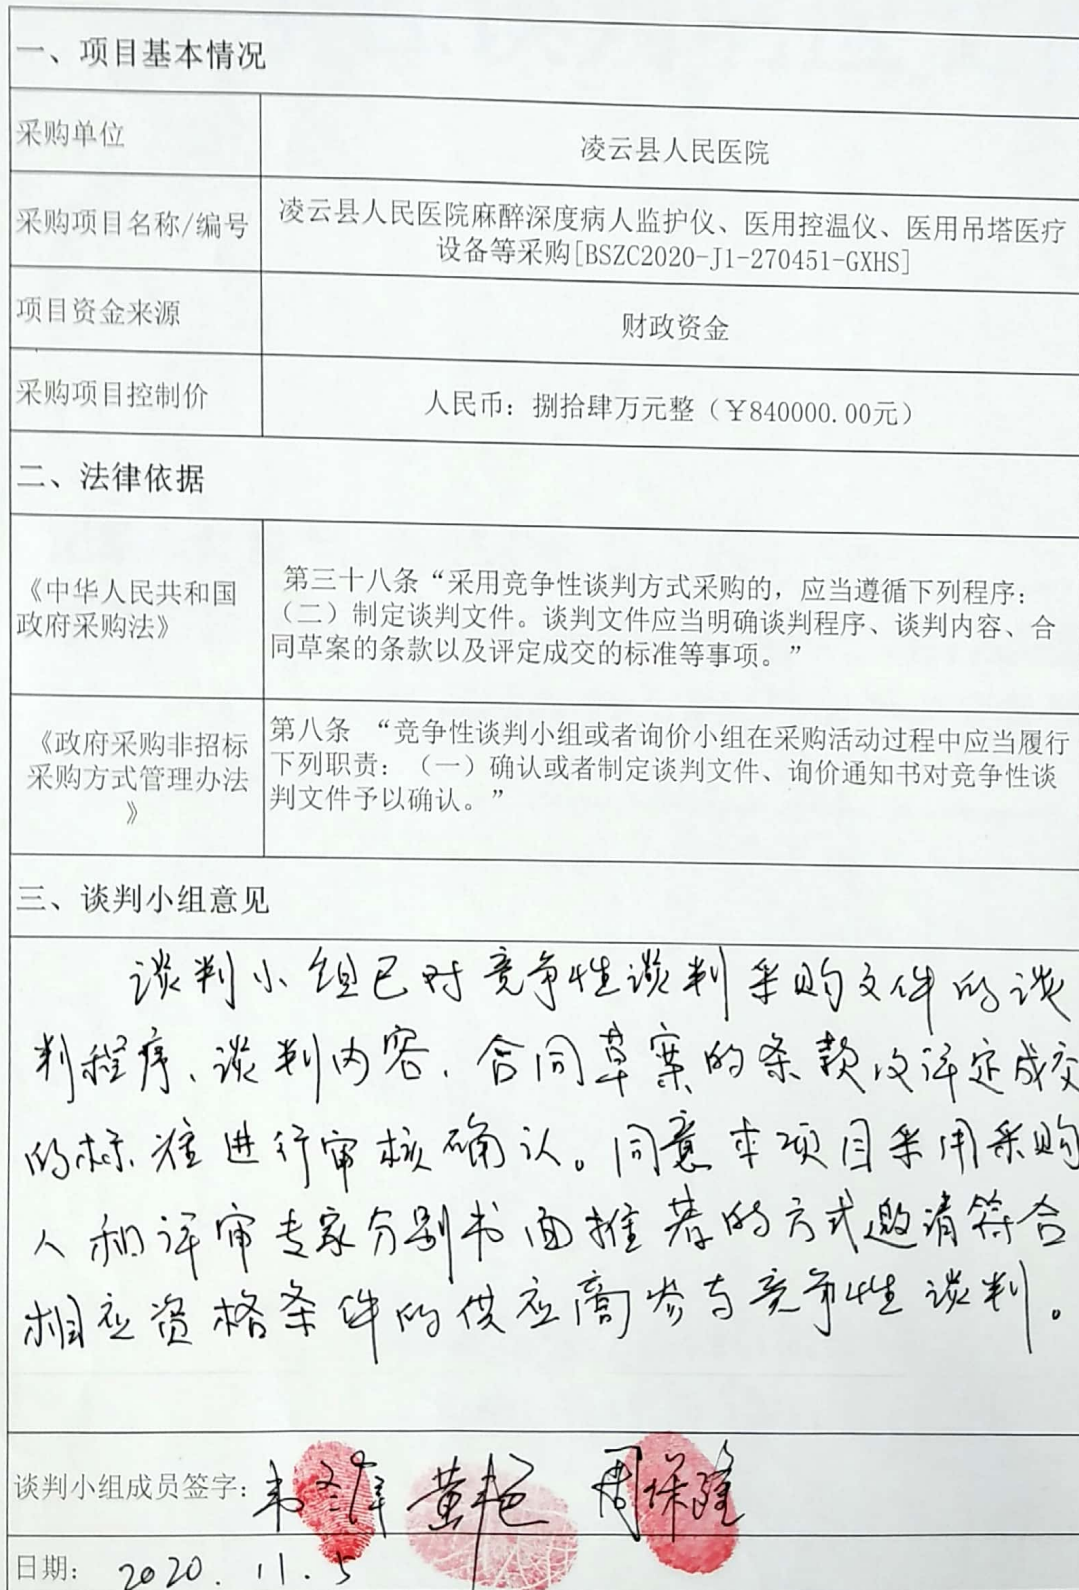 一、项目基本情况
采购单位
凌云县人民医院
采购项目名称/编号
凌云县人民医院麻醉深度病人监护仪、医用控温仪、医用吊塔医疗
设备等采购[BSZC2020-J1-270451-GXHS]
项目资金来源
财政资金
采购项目控制价
人民币：捌拾肆万元整（￥840000.00元）
二、法律依据
《中华人民共和国
政府采购法》
第三十八条“采用竞争性谈判方式采购的，应当遵循下列程序：
（二）制定谈判文件。谈判文件应当明确谈判程序、谈判内容、合
同草案的条款以及评定成交的标准等事项。”
《政府采购非招标
采购方式管理办法
》
第八条 “竞争性谈判小组或者询价小组在采购活动过程中应当履行
下列职责：（一）确认或者制定谈判文件、询价通知书对竞争性谈
判文件予以确认。”
三、谈判小组意见
谈判小组已对竞争性谈判采购文件的谈
判程序、谈判内容、合同草案的条款及评定成交
的标准进行审核确认。同意本项目采用采购
人和评审专家分别书面推荐的方式邀请符合
相应资格条件的供应商参与竞争性谈判。
谈判小组成员签字： 黄艳 周保隆
日期： 2020.11.5